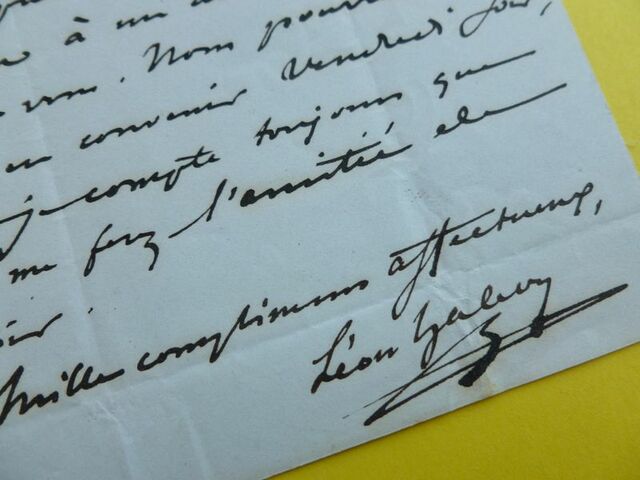 à un
vous. Nous pourr
en convenir vendredi soir,
je compte toujours que
me ferez l'amitié de
Mille complimens affectueux,
Léon Halévy